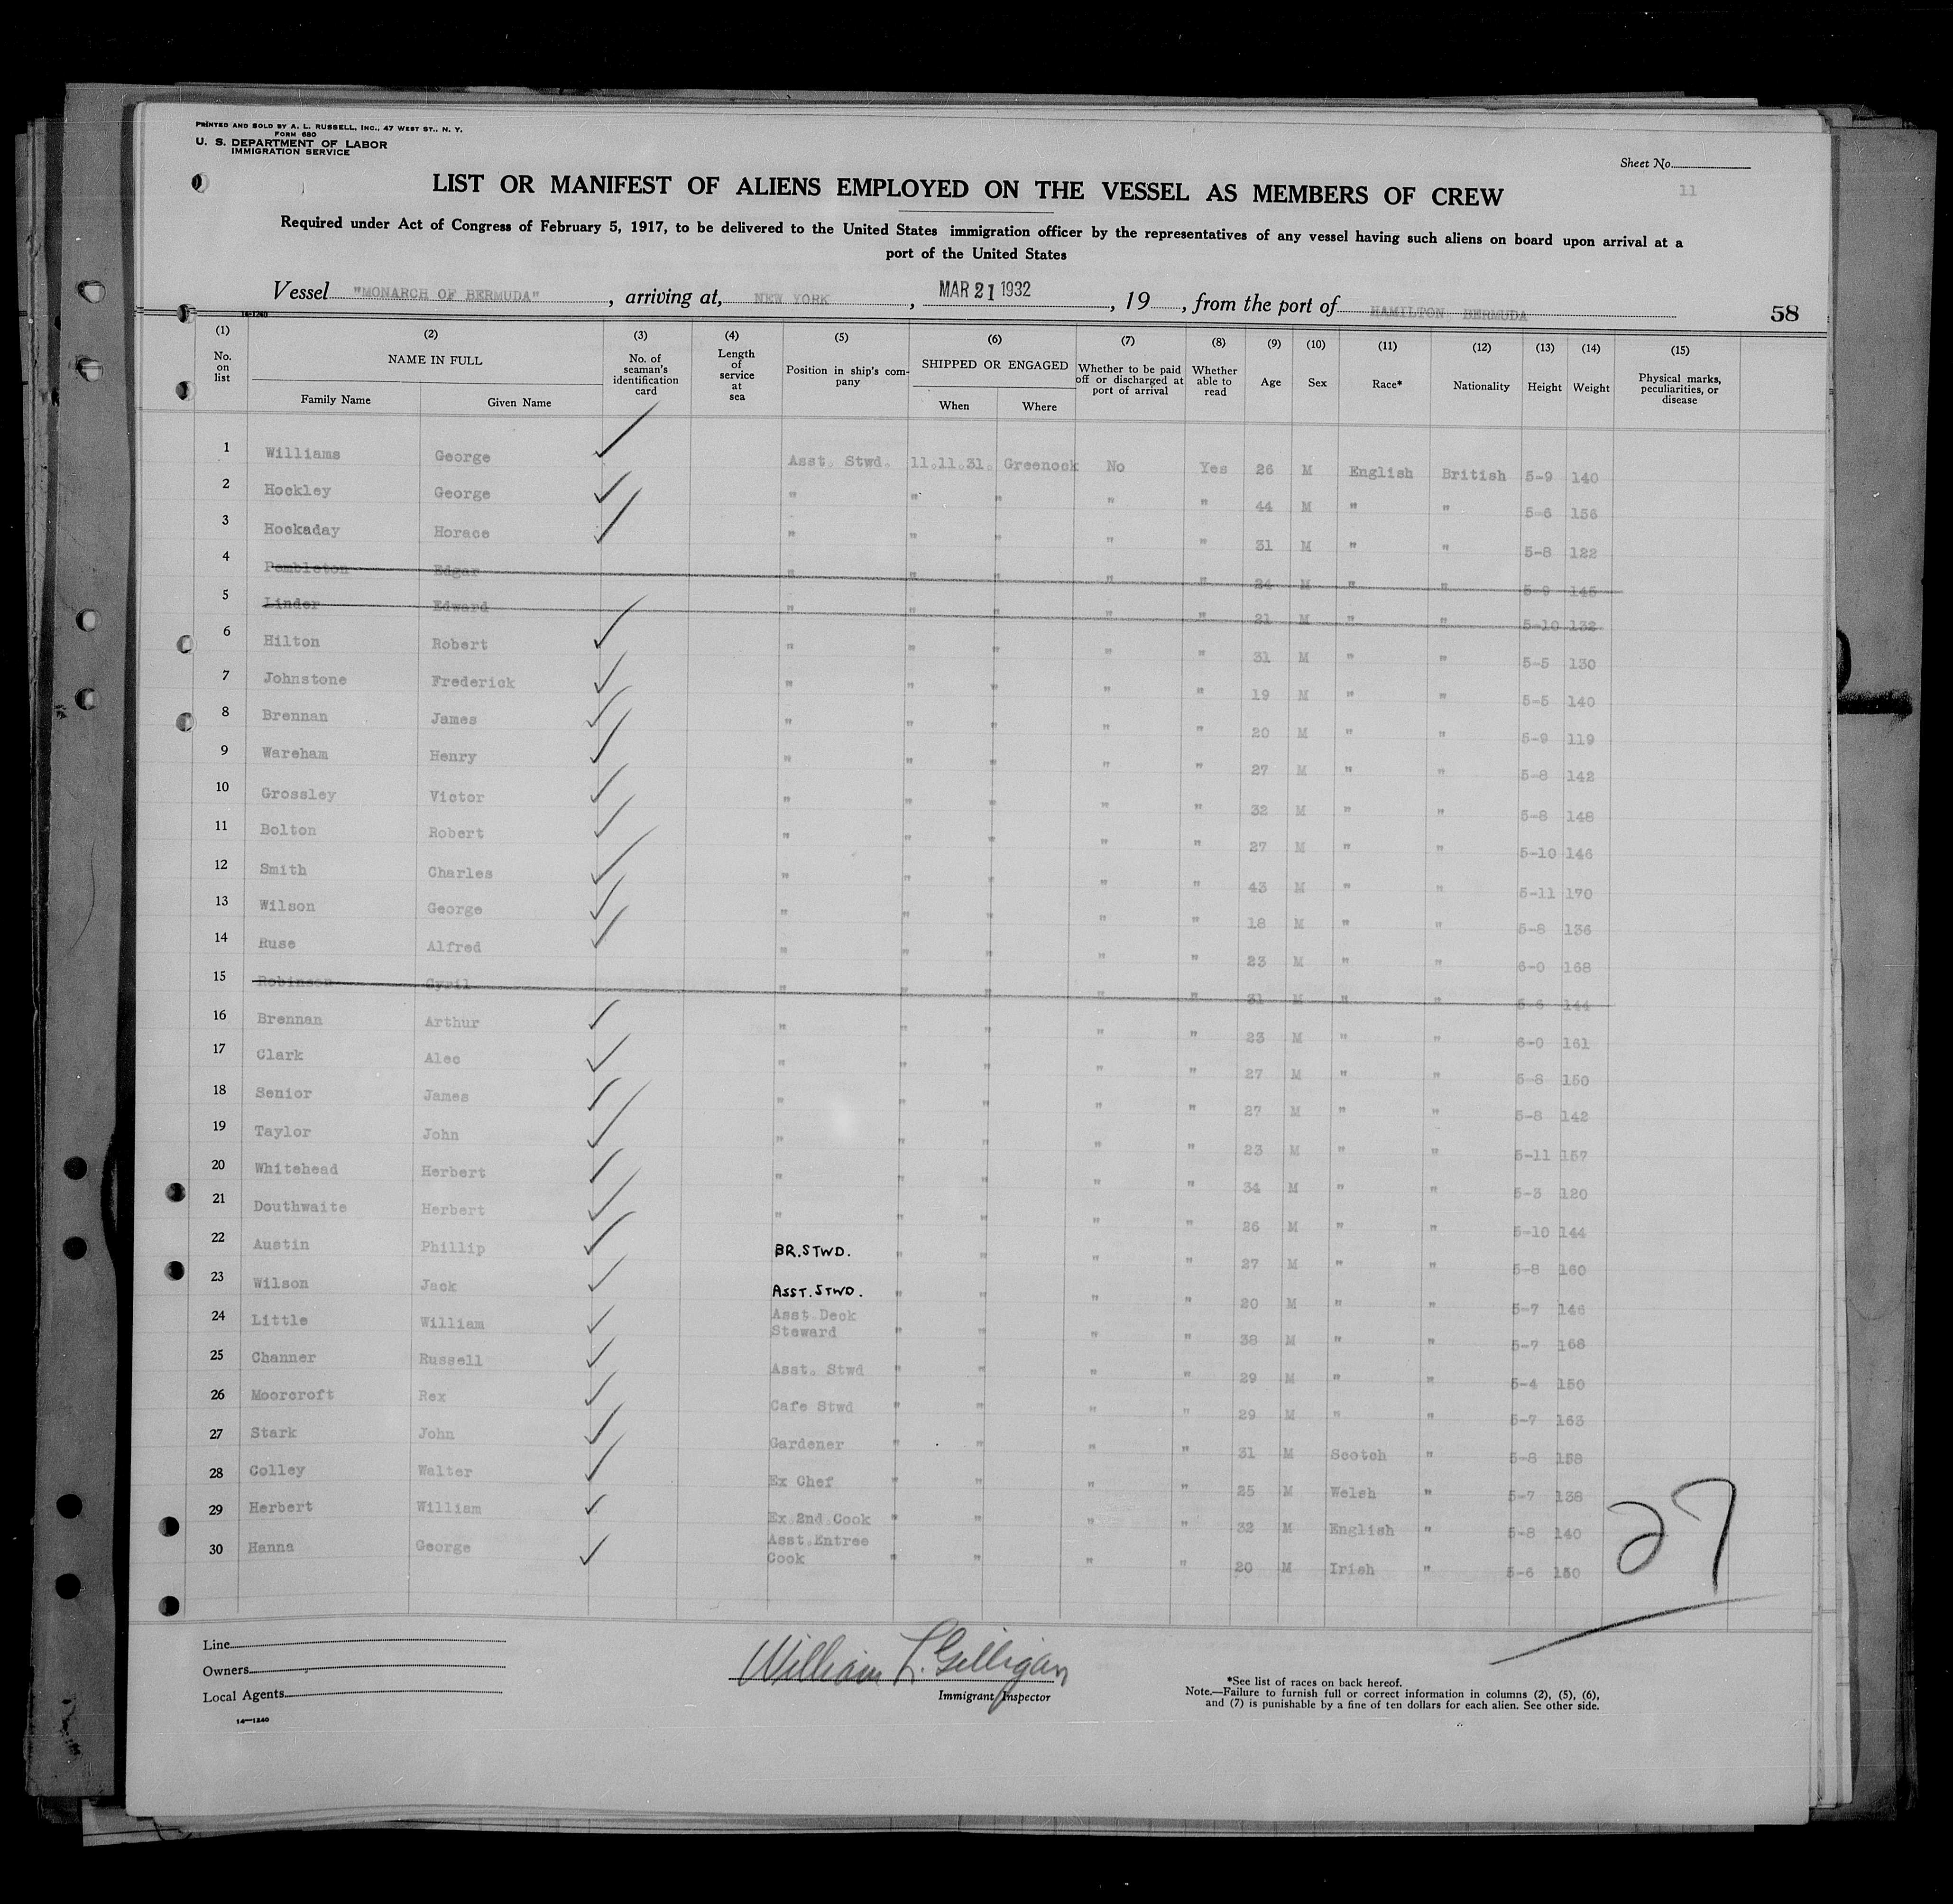 PRINTED AND SOLD BY A. L. RUSSELL, INC., 47 WEST ST., N. Y.
FORM 680
U. S. DEPARTMENT OF LABOR
IMMIGRATION SERVICE
Sheet No.
11
LIST OR MANIFEST OF ALIENS EMPLOYED ON THE VESSEL AS MEMBERS OF CREW
Required under Act of Congress of February 5, 1917, to be delivered to the United States immigration officer by the representatives of any vessel having such aliens on board upon arrival at a
port of the United States
Vessel "MONARCH OF BERMUDA", arriving at, NEW YORK, MAR 21 1932, 19, from the port of HAMILTON BERMUDA
58
14-1240
(1) (2) (3) (4) (5) (6) (7) (8) (9) (10) (11) (12) (13) (14) (15)
No. on list NAME IN FULL Family Name Given Name No. of seaman's identification card Length of service at sea Position in ship's company SHIPPED OR ENGAGED When Where Whether to be paid off or discharged at port of arrival Whether able to read Age Sex Race* Nationality Height Weight Physical marks, peculiarities, or disease
1 Williams George Asst. Stwd. 11.11.31. Greenock No Yes 26 M English British 5-9 140
2 Hockley George " " " " " 44 M " " 5-6 156
3 Hockaday Horace " " " " " 31 M " " 5-8 122
4 Pembleton Edgar " " " " " 24 M " " 5-9 145
5 Linder Edward " " " " " 21 M " " 5-10 132
6 Hilton Robert " " " " " 31 M " " 5-5 130
7 Johnstone Frederick " " " " " 19 M " " 5-5 140
8 Brennan James " " " " " 20 M " " 5-9 119
9 Wareham Henry " " " " " 27 M " " 5-8 142
10 Grossley Victor " " " " " 32 M " " 5-8 148
11 Bolton Robert " " " " " 27 M " " 5-10 146
12 Smith Charles " " " " " 43 M " " 5-11 170
13 Wilson George " " " " " 18 M " " 5-8 136
14 Ruse Alfred " " " " " 23 M " " 6-0 168
15 Robinson Cyril " " " " " 31 M " " 5-6 144
16 Brennan Arthur " " " " " 23 M " " 6-0 161
17 Clark Alec " " " " " 27 M " " 5-8 150
18 Senior James " " " " " 27 M " " 5-8 142
19 Taylor John " " " " " 23 M " " 5-11 157
20 Whitehead Herbert " " " " " 34 M " " 5-3 120
21 Douthwaite Herbert " " " " " 26 M " " 5-10 144
22 Austin Phillip BR.STWD. " " " " 27 M " " 5-8 160
23 Wilson Jack ASST.STWD. " " " " 20 M " " 5-7 146
24 Little William Asst Deck Steward " " " " 38 M " " 5-7 168
25 Channer Russell Asst. Stwd " " " " 29 M " " 5-4 150
26 Moorcroft Rex Cafe Stwd " " " " 29 M " " 5-7 163
27 Stark John Gardener " " " " 31 M Scotch " 5-8 158
28 Colley Walter Ex Chef " " " " 25 M Welsh " 5-7 138
29 Herbert William Ex.2nd.Cook " " " " 32 M English " 5-8 140
30 Hanna George Asst.Entree Cook " " " " 20 M Irish " 5-6 150
27
Line
Owners
Local Agents
14—1240
William L. Gilligan
Immigrant Inspector
*See list of races on back hereof.
Note.—Failure to furnish full or correct information in columns (2), (5), (6),
and (7) is punishable by a fine of ten dollars for each alien. See other side.